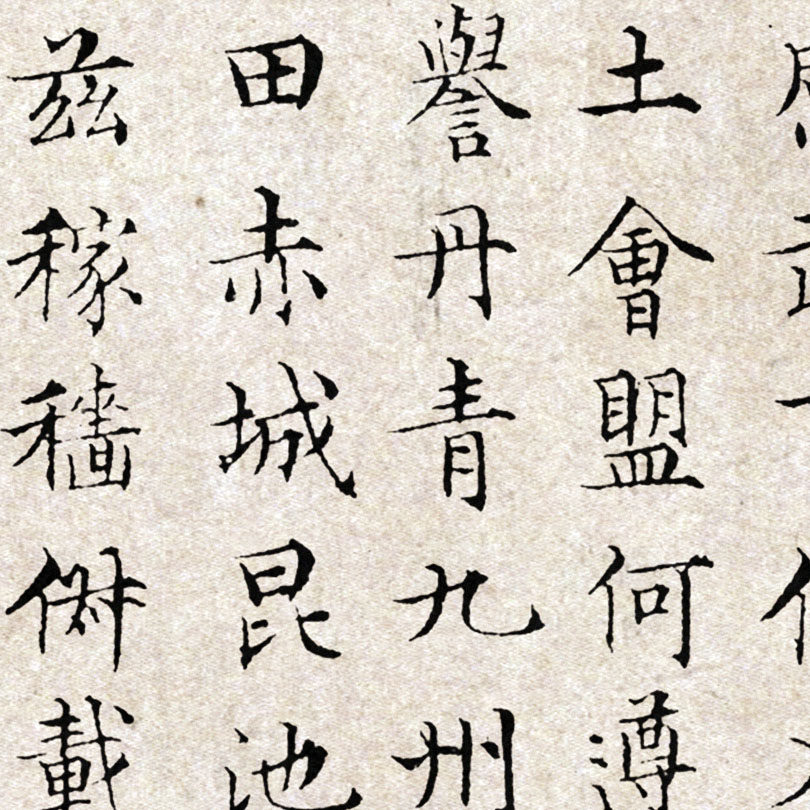 土會盟何遵
譽丹青九州
田赤城昆池
茲稼穡俶載